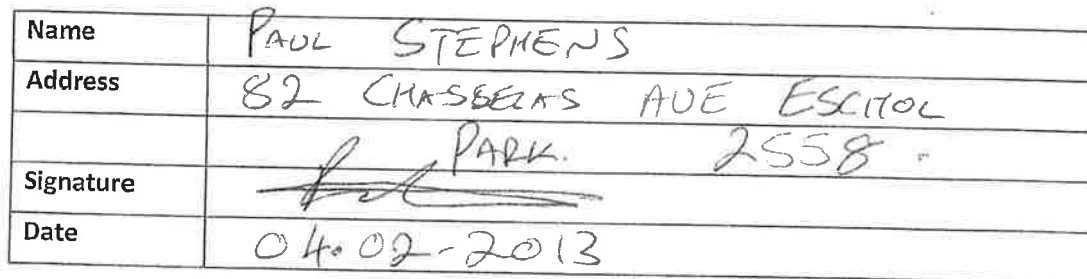 Name PAUL STEPHENS
Address 82 CHASSELAS AVE ESCHOL
PARK. 2558.
Signature
Date 04.02-2013